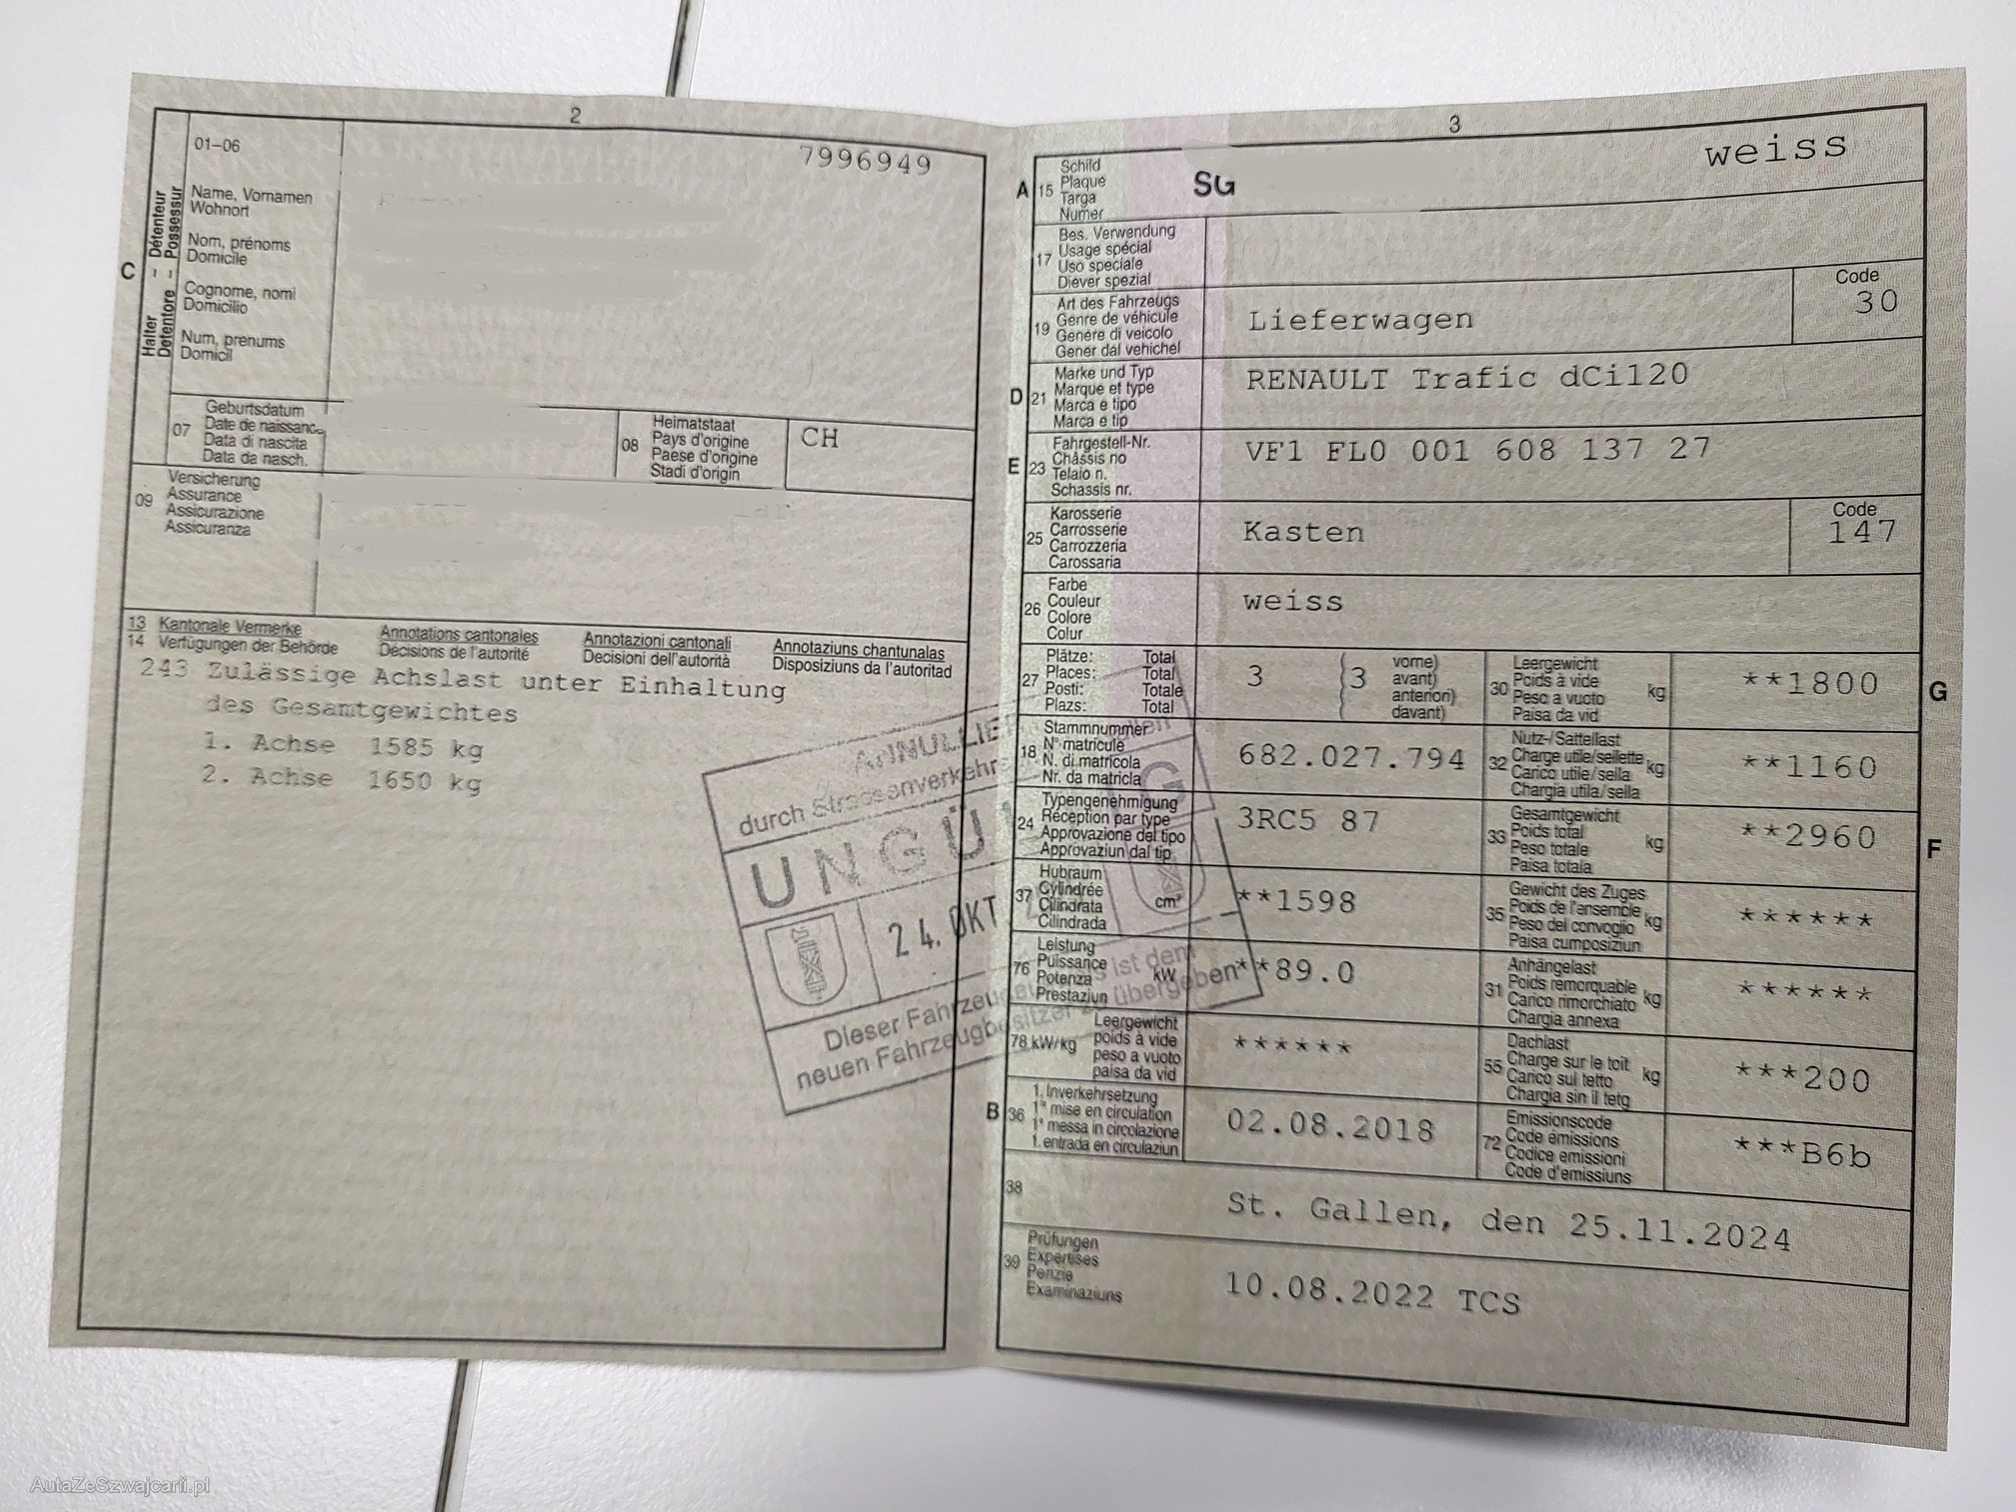 2
01–06
7996949
C
Halter – Détenteur
Detentore – Possessur
Name, Vornamen
Wohnort
Nom, prénoms
Domicile
Cognome, nomi
Domicilio
Num, prenums
Domicil
07
Geburtsdatum
Date de naissance
Data di nascita
Data da nasch.
08
Heimatstaat
Pays d'origine
Paese d'origine
Stadi d'origin
CH
09
Versicherung
Assurance
Assicurazione
Assicuranza
13 Kantonale Vermerke Annotations cantonales Annotazioni cantonali Annotaziuns chantunalas
14 Verfügungen der Behörde Décisions de l'autorité Decisioni dell'autorità Disposiziuns da l'autoritad
243 Zulässige Achslast unter Einhaltung
des Gesamtgewichtes
1. Achse 1585 kg
2. Achse 1650 kg
ANNULLIE
durch Strassenverkehrs
UNGÜ G
24. OKT
Dieser Fahrzeugau s ist dem
neuen Fahrzeugbesitzer zu übergeben
3
weiss
A 15
Schild
Plaque
Targa
Numer
SG
17
Bes. Verwendung
Usage spécial
Uso speciale
Diever spezial
19
Art des Fahrzeugs
Genre de véhicule
Genere di veicolo
Gener dal vehichel
Lieferwagen
Code
30
D 21
Marke und Typ
Marque et type
Marca e tipo
Marca e tip
RENAULT Trafic dCi120
E 23
Fahrgestell-Nr.
Châssis no
Telaio n.
Schassis nr.
VF1 FL0 001 608 137 27
25
Karosserie
Carrosserie
Carrozzeria
Carossaria
Kasten
Code
147
26
Farbe
Couleur
Colore
Colur
weiss
27
Plätze: Total
Places: Total
Posti: Totale
Plazs: Total
3 (3
vorne)
avant)
anteriori)
davant)
30
Leergewicht
Poids à vide
Peso a vuoto
Paisa da vid
kg
**1800
G
18
Stammnummer
N° matricule
N. di matricola
Nr. da matricla
682.027.794
32
Nutz-/Sattellast
Charge utile/sellette
Carico utile/sella
Chargia utila/sella
kg
**1160
24
Typengenehmigung
Réception par type
Approvazione del tipo
Approvaziun dal tip
3RC5 87
33
Gesamtgewicht
Poids total
Peso totale
Paisa totala
kg
**2960
F
37
Hubraum
Cylindrée
Cilindrata
Cilindrada
cm³
**1598
35
Gewicht des Zuges
Poids de l'ensemble
Peso del convoglio
Paisa cumposiziun
kg
******
76
Leistung
Puissance
Potenza
Prestaziun
kW
**89.0
31
Anhängelast
Poids remorquable
Carico rimorchiato
Chargia annexa
kg
******
78 kW/kg
Leergewicht
poids à vide
peso a vuoto
paisa da vid
******
55
Dachlast
Charge sur le toit
Carico sul tetto
Chargia sin il tetg
kg
***200
B 36
1. Inverkehrsetzung
1re mise en circulation
1a messa in circolazione
1. entrada en circulaziun
02.08.2018
72
Emissionscode
Code émissions
Codice emissioni
Code d'emissiuns
***B6b
38
St. Gallen, den 25.11.2024
39
Prüfungen
Expertises
Perizie
Examinaziuns
10.08.2022 TCS
AutaZeSzwajcarii.pl